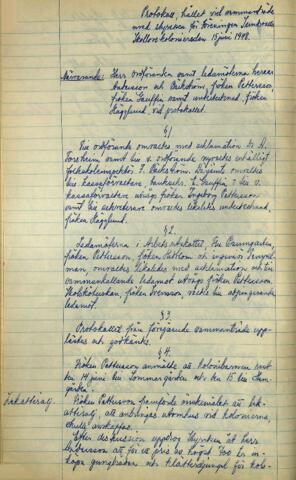 Protokoll, hållet vid sammanträde
med styrelsen för föreningen
Skollovskolonier den 15 juni 1948.
Närvarande: Herr ordföranden samt ledamöterna herrar
Andersson och Erikström, fröken Pettersson,
fröken Gauffin samt undertecknad, fröken
Hägglund, vid protokollet.
§ 1
Till ordförande omvaldes med acklamation
samt till v. ordförande nyvaldes enhälligt
folkskoleinspektör Eriksström. Likaledes omvaldes
till kassaförvaltare Gauffin; till v.
kassaförvaltare utsågs fröken Ingeborg Pettersson
samt till sekreterare omvaldes likaledes undertecknad,
fröken Hägglund.
§ 2.
Ledamöterna i Arbetsutskottet, Fru Baumgarten,
fröken Pettersson, fröken och ingenjör
omvaldes likaledes med acklamation och till
sammankallande ledamot utsågs fröken Pettersson.
fröken Svensson, valdes till adjungerande
ledamot.
§ 3.
Protokollet från föregående sammanträde upplästes
och godkändes.
§ 4.
Fröken Pettersson anmälde att kolonibarnen rest
den 14 juni till Sommargården och den 15 till
Lekattiralj. Fröken Pettersson framförde önskemålet att
lekattiralj, att användas utomhus vid kolonierna,
skulle anskaffas.
Efter diskussion uppdrog styrelsen åt herr
Andersson att för ett pris av högst 700 kr.
köpa gungbräder och klätterdjungel för kolo-